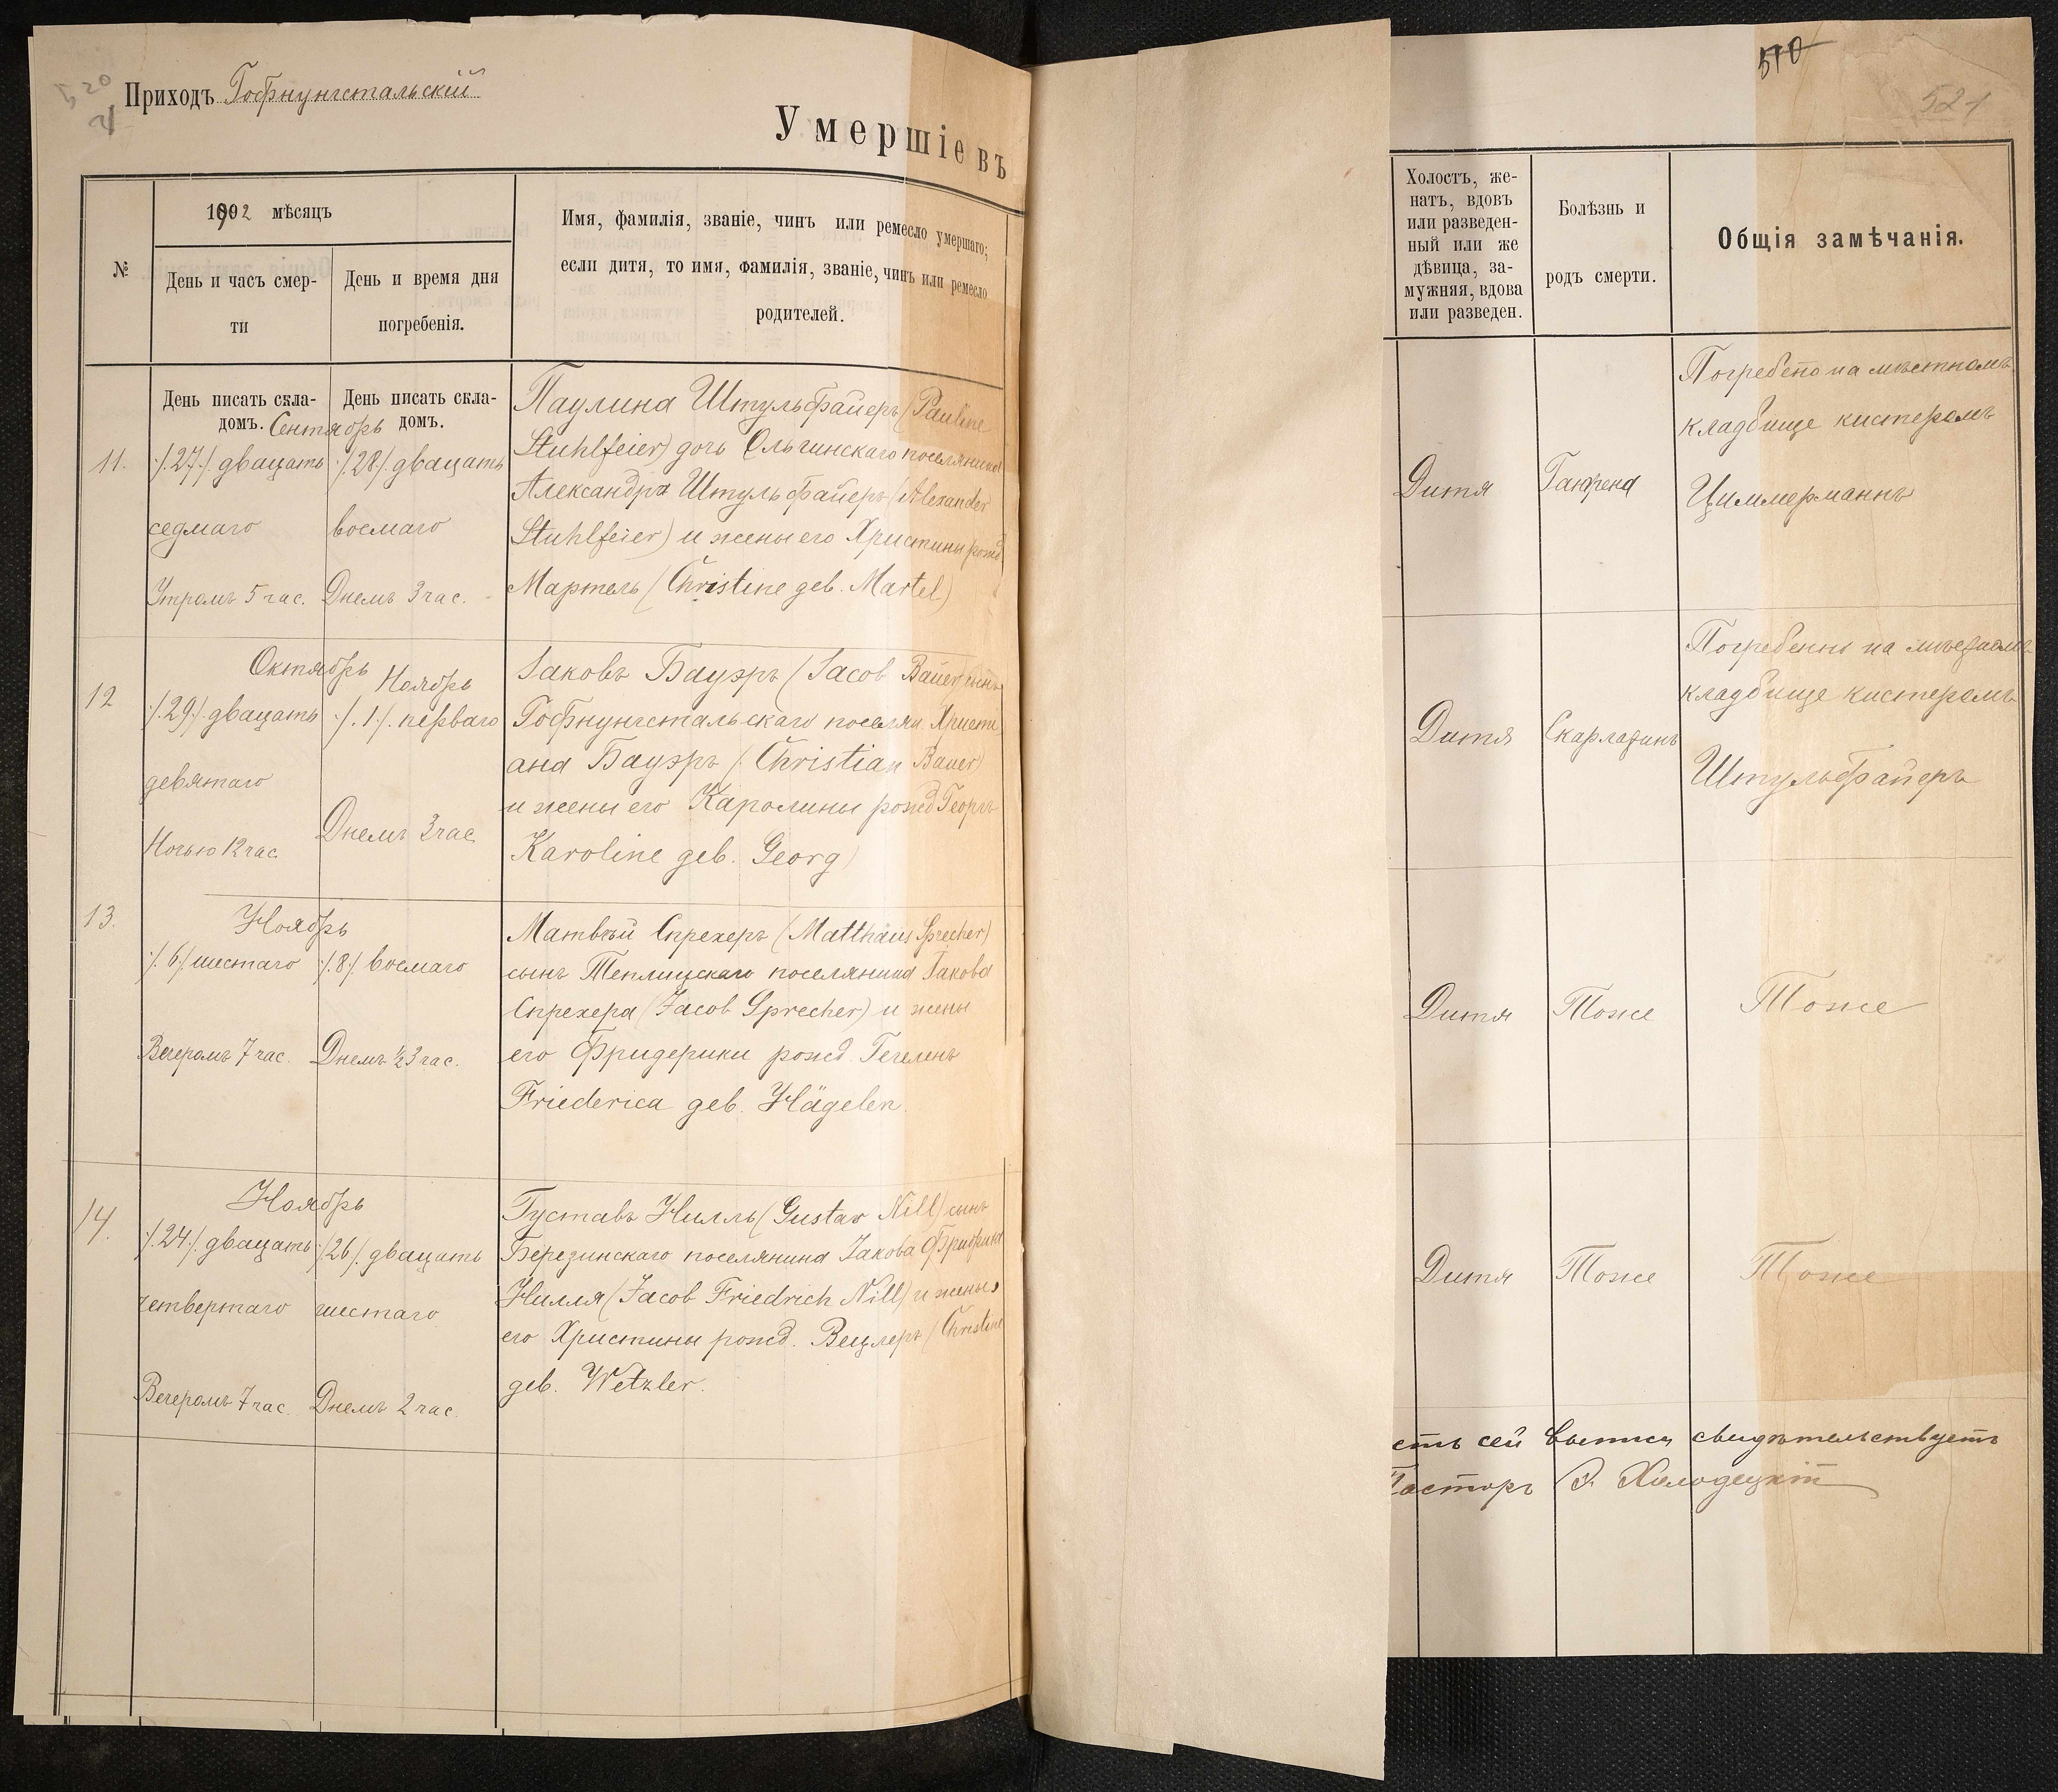 520
Приходъ Гофнунгстальскій
Умершіе въ
№
1892 мѣсяцъ
День и часъ смер-
ти
День и время дня
погребенія.
Имя, фамилія, званіе, чинъ или ремесло умершаго;
если дитя, то имя, фамилія, званіе, чинъ или ремесло
родителей.
День писать скла-
домъ.
День писать скла-
домъ.
Сентябрь
11.
./.27./. двацать
седмаго
Утромъ 5 час.
./.28./. двацать
восмаго
Днемъ 3 час.
Паулина Штульфайеръ (Pauline
Stuhlfeier) дочь Ольгинскаго поселянина
Александра Штульфайеръ (Alexander
Stuhlfeier) и жены его Христины рожд
Мартель (Christine geb. Martel)
12
Октябрь
./.29./. двацать
девятаго
Ночью 12 час.
Ноябрь
./.1./. перваго
Днемъ 3 час
Іаковъ Бауэръ (Jacob Bauer) сынъ
Гофнунгстальскаго поселян. Христі
ана Бауэръ (Christian Bauer)
и жены его Каролины рожд Георгъ
Karoline geb. Georg)
13.
Ноябрь
./.6./. шестаго
Вечеромъ 7 час.
./.8./. восмаго
Днемъ ½3 час.
Матвѣй Спрехеръ (Matthäus Sprecher)
сынъ Теплицскаго поселянина Іакова
Спрехера (Jacob Sprecher) и жены
его Фридерики рожд. Гегеленъ
Friederica geb. Hägelen.
14.
Ноябрь
./.24./. двацать
четвертаго
Вечеромъ 7 час.
./.26./. двацать
шестаго
Днемъ 2 час.
Густавъ Нилль (Gustav Nill) сынъ
Березинскаго поселянина Іакова Фридриха
Нилля (Jacob Friedrich Nill) и жены
его Христины рожд. Вецлеръ (Christine
geb. Wetzler.
510
521
Холостъ, же-
натъ, вдовъ
или разведен-
ный или же
дѣвица, за-
мужняя, вдова
или разведен.
Болѣзнь и
родъ смерти.
Общія замѣчанія.
Дитя
Гангрена
Погребено на мѣстномъ
кладбище кистеромъ
Циммерманнъ
Дитя
Скарлатинъ
Погребенъ на мѣстномъ
кладбище кистеромъ
Штульфайеръ
Дитя
Тоже
Тоже
Дитя
Тоже
Тоже
сть сей выписи свидѣтельствуетъ
Пасторъ